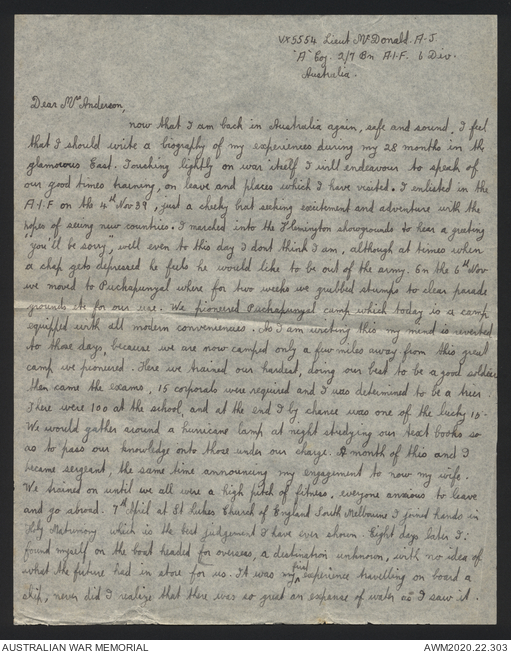 VX5554 Lieut McDonald. A.J.
"A" Coy. 2/7 Bn A.I.F. 6 Div.
Australia.
Dear Mrs Anderson,
now that I am back in Australia again, safe and sound, I feel
that I should write a biography of my experiences during my 28 months in the
glamorous East. Touching lightly on war itself I will endeavour to speak of
our good times training, on leave and places which I have visited. I enlisted in the
A.I.F on the 4th Nov 39, just a cheeky brat seeking excitement and adventure with the
hopes of seeing new countries. I marched into the Flemington showgrounds to hear a greeting
'you'll be sorry, well even to this day I dont think I am, although at times when
a chap gets depressed he feels he would like to be out of the army. On the 6th Nov
we moved to Puckapunyal where for two weeks we grubbed stumps to clear parade
grounds etc for our use. We pioneered Puckapunyal camp which today is a camp
equipped with all modern conveniences. As I am writing this my mind is reverted
to those days, because we are now camped only a few miles away from this great
camp we pioneered. Here we trained our hardest, doing our best to be a good soldier
then came the exams, 15 corporals were required and I was determined to be a trier
There were 100 at the school, and at the end I by chance was one of the lucky 15.
We would gather around a hurricane lamp at night studying our text books so
as to pass our knowledge onto those under our charge. A month of this and I
became sergeant, the same time announcing my engagement to now my wife.
We trained on until we all were a high pitch of fitness, everyone anxious to leave
and go abroad. 7th April at St Lukes Church of England South Melbourne I joined hands in
Holy Matrimony which is the best judgement I have ever shown. Eight days later I
found myself on the boat headed for overseas, a destination unknown, with no idea of
what the future had in store for us. It was my first experience travelling on board a
ship, never did I realize that there was so great an expanse of water as I saw it.
AUSTRALIAN WAR MEMORIAL
AWM2020.22.303